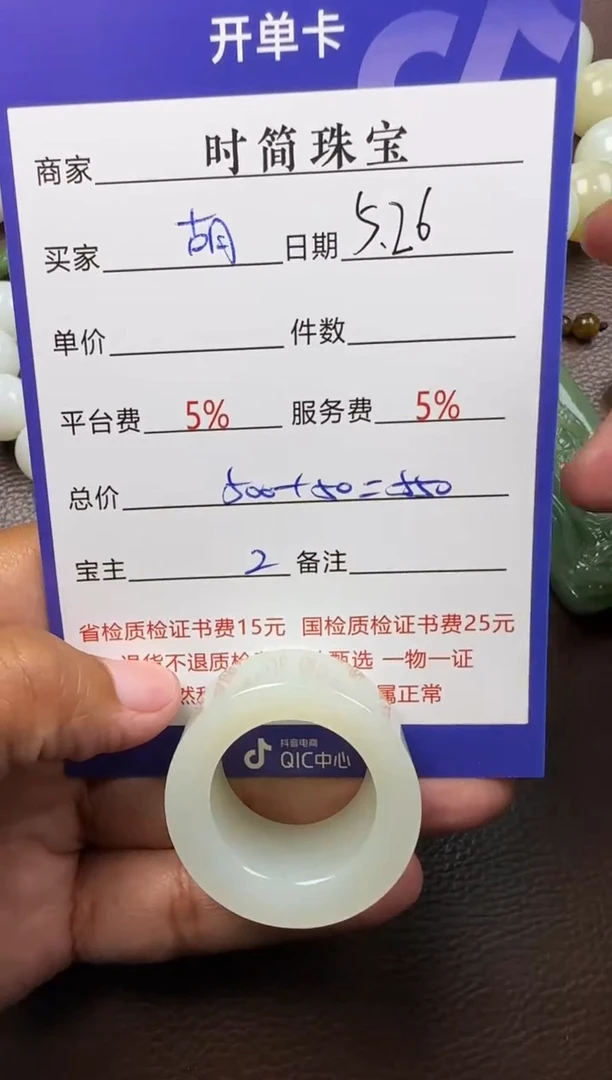 开单卡
商家 时简珠宝
买家 胡 日期 5.26
单价 件数
平台费 5% 服务费 5%
总价 500+50=550
宝主 2 备注
省检质检证书费15元 国检质检证书费25元
退货不退质检 甄选 一物一证
然 属正常
抖音电商
QIC中心